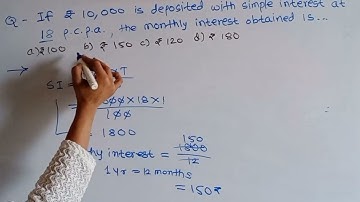 Q - If ₹ 10,000 is deposited with simple interest at
18 p.c.p.a., the monthly interest obtained is...
a) ₹100 b) ₹ 150 c) ₹ 120 d) ₹ 180
→
SI =
= 18 × 1
100
= 1800
interest = 1800 150
12
1 yr = 12 months
= 150₹